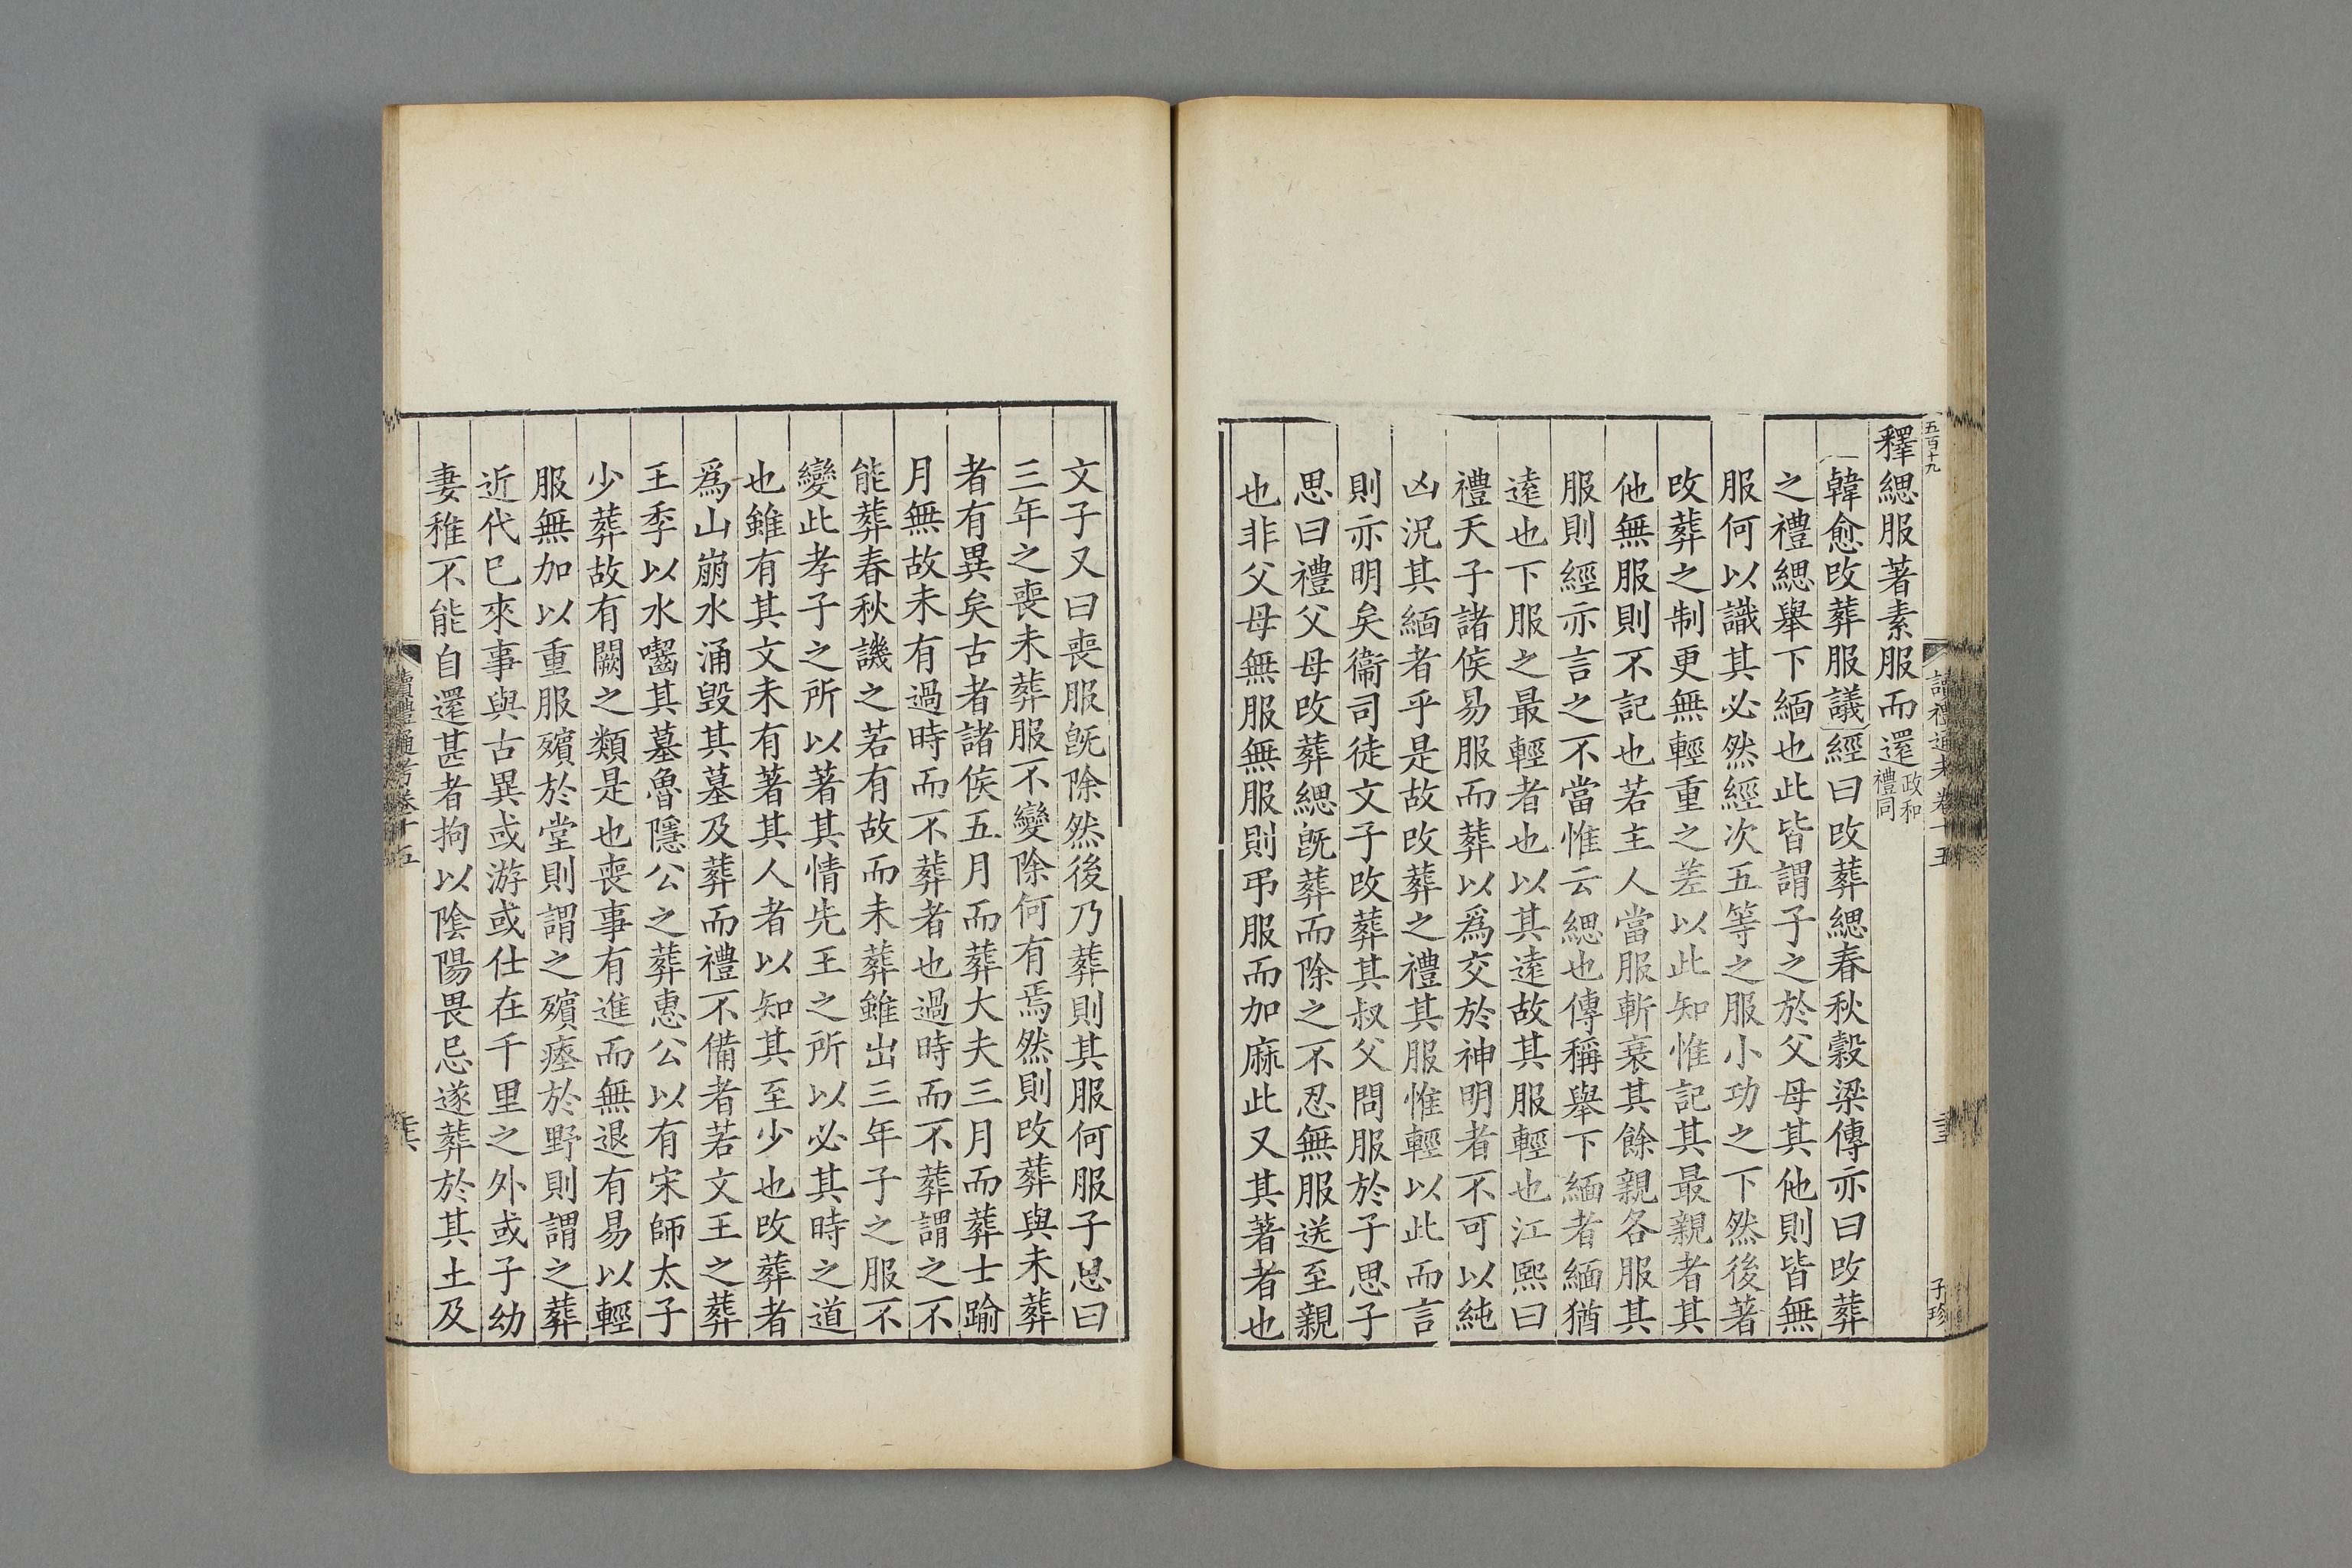 五百十九
讀禮通考卷十五
子珍
釋緦服著素服而還政和禮同
韓愈改葬服議經曰改葬緦春秋穀梁傳亦曰改葬
之禮緦舉下緬也此皆謂子之於父母其他則皆無
服何以識其必然經次五等之服小功之下然後著
改葬之制更無輕重之差以此知惟記其最親者其
他無服則不記也若主人當服斬衰其餘親各服其
服則經亦言之不當惟云緦也傳稱舉下緬者緬猶
遠也下服之最輕者也以其遠故其服輕也江熙曰
禮天子諸侯易服而葬以爲交於神明者不可以純
凶況其緬者乎是故改葬之禮其服惟輕以此而言
則亦明矣衞司徒文子改葬其叔父問服於子思子
思曰禮父母改葬緦旣葬而除之不忍無服送至親
也非父母無服無服則弔服而加麻此又其著者也
文子又曰喪服旣除然後乃葬則其服何服子思曰
三年之喪未葬服不變除何有焉然則改葬與未葬
者有異矣古者諸侯五月而葬大夫三月而葬士踰
月無故未有過時而不葬者也過時而不葬謂之不
能葬春秋譏之若有故而未葬雖出三年子之服不
變此孝子之所以著其情先王之所以必其時之道
也雖有其文未有著其人者以知其至少也改葬者
爲山崩水涌毀其墓及葬而禮不備者若文王之葬
王季以水齧其墓魯隱公之葬惠公以有宋師太子
少葬故有闕之類是也喪事有進而無退有易以輕
服無加以重服殯於堂則謂之殯瘞於野則謂之葬
近代已來事與古異或游或仕在千里之外或子幼
妻稚不能自還甚者拘以陰陽畏忌遂葬於其土及
讀禮通考卷十五